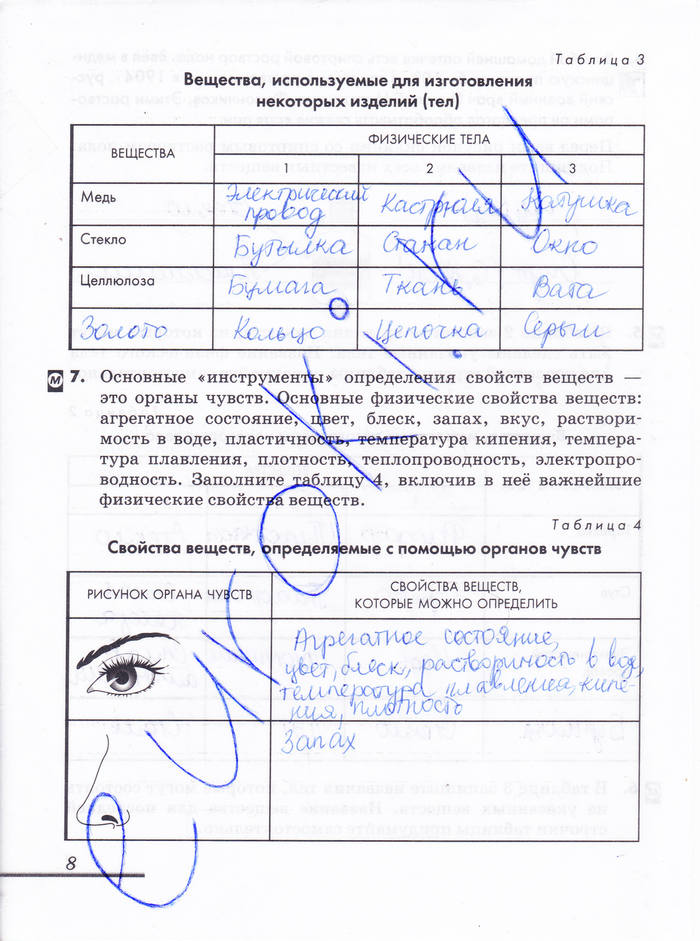 Таблица 3
Вещества, используемые для изготовления
некоторых изделий (тел)
ВЕЩЕСТВА
ФИЗИЧЕСКИЕ ТЕЛА
1 2 3
Медь Электрический провод Кастрюля Катушка
Стекло Бутылка Стакан Окно
Целлюлоза Бумага Ткань Вата
Золото Кольцо Цепочка Серьги
М 7. Основные «инструменты» определения свойств веществ —
это органы чувств. Основные физические свойства веществ:
агрегатное состояние, цвет, блеск, запах, вкус, раствори-
мость в воде, пластичность, температура кипения, темпера-
тура плавления, плотность, теплопроводность, электропро-
водность. Заполните таблицу 4, включив в неё важнейшие
физические свойства веществ.
Таблица 4
Свойства веществ, определяемые с помощью органов чувств
РИСУНОК ОРГАНА ЧУВСТВ
СВОЙСТВА ВЕЩЕСТВ,
КОТОРЫЕ МОЖНО ОПРЕДЕЛИТЬ
Агрегатное состояние,
цвет, блеск, растворимость в воде,
температура плавления, кипе-
ния, плотность
Запах
8